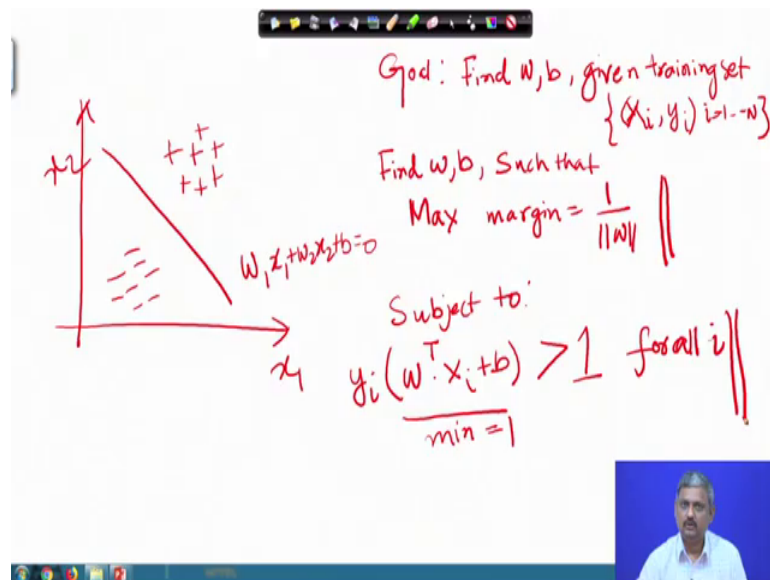 Goal: Find w, b, given training set
{(x_i, y_i) i=1...N}
Find w, b, Such that
Max margin = 1/||w||
Subject to:
y_i(w^T. x_i+b) > 1 for all i
min = 1
x2
w_1x_1+w_2x_2+b=0
x_1